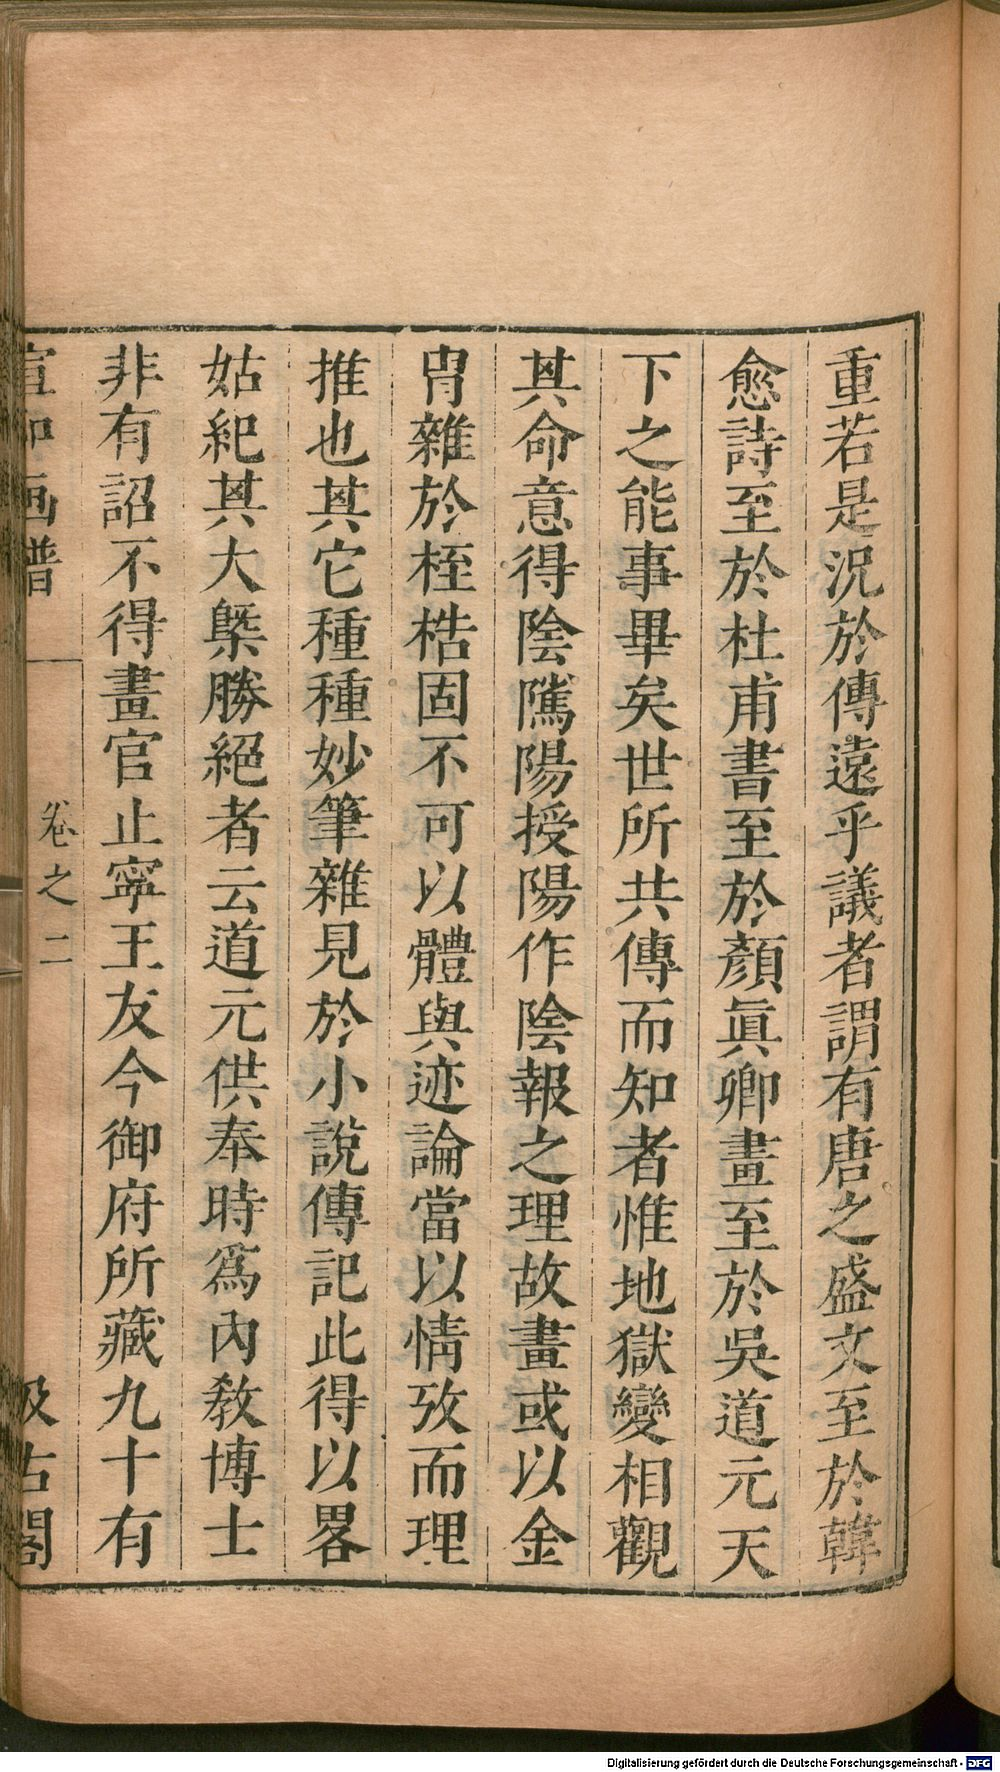 重若是況於傳遠乎議者謂有唐之盛文至於韓
愈詩至於杜甫書至於顏眞卿畫至於吳道元天
下之能事畢矣世所共傳而知者惟地獄變相觀
其命意得陰隲陽授陽作陰報之理故畫或以金
胄雜於桎梏固不可以體與迹論當以情攷而理
推也其它種種妙筆雜見於小說傳記此得以畧
姑紀其大槩勝絕者云道元供奉時爲內敎博士
非有詔不得畫官止寧王友今御府所藏九十有
宣和画譜 卷之二 汲古閣
Digitalisierung gefördert durch die Deutsche Forschungsgemeinschaft - DFG